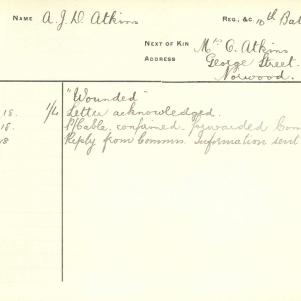 NAME A.J.D Atkins REG., &C. 10th Bat
NEXT OF KIN Mrs C. Atkins
ADDRESS George Street
Norwood.
"Wounded"
18. 1/4 Letter acknowledged.
18. P/Cable, confirmed, forwarded Com
18 Reply from Commn. Information sent